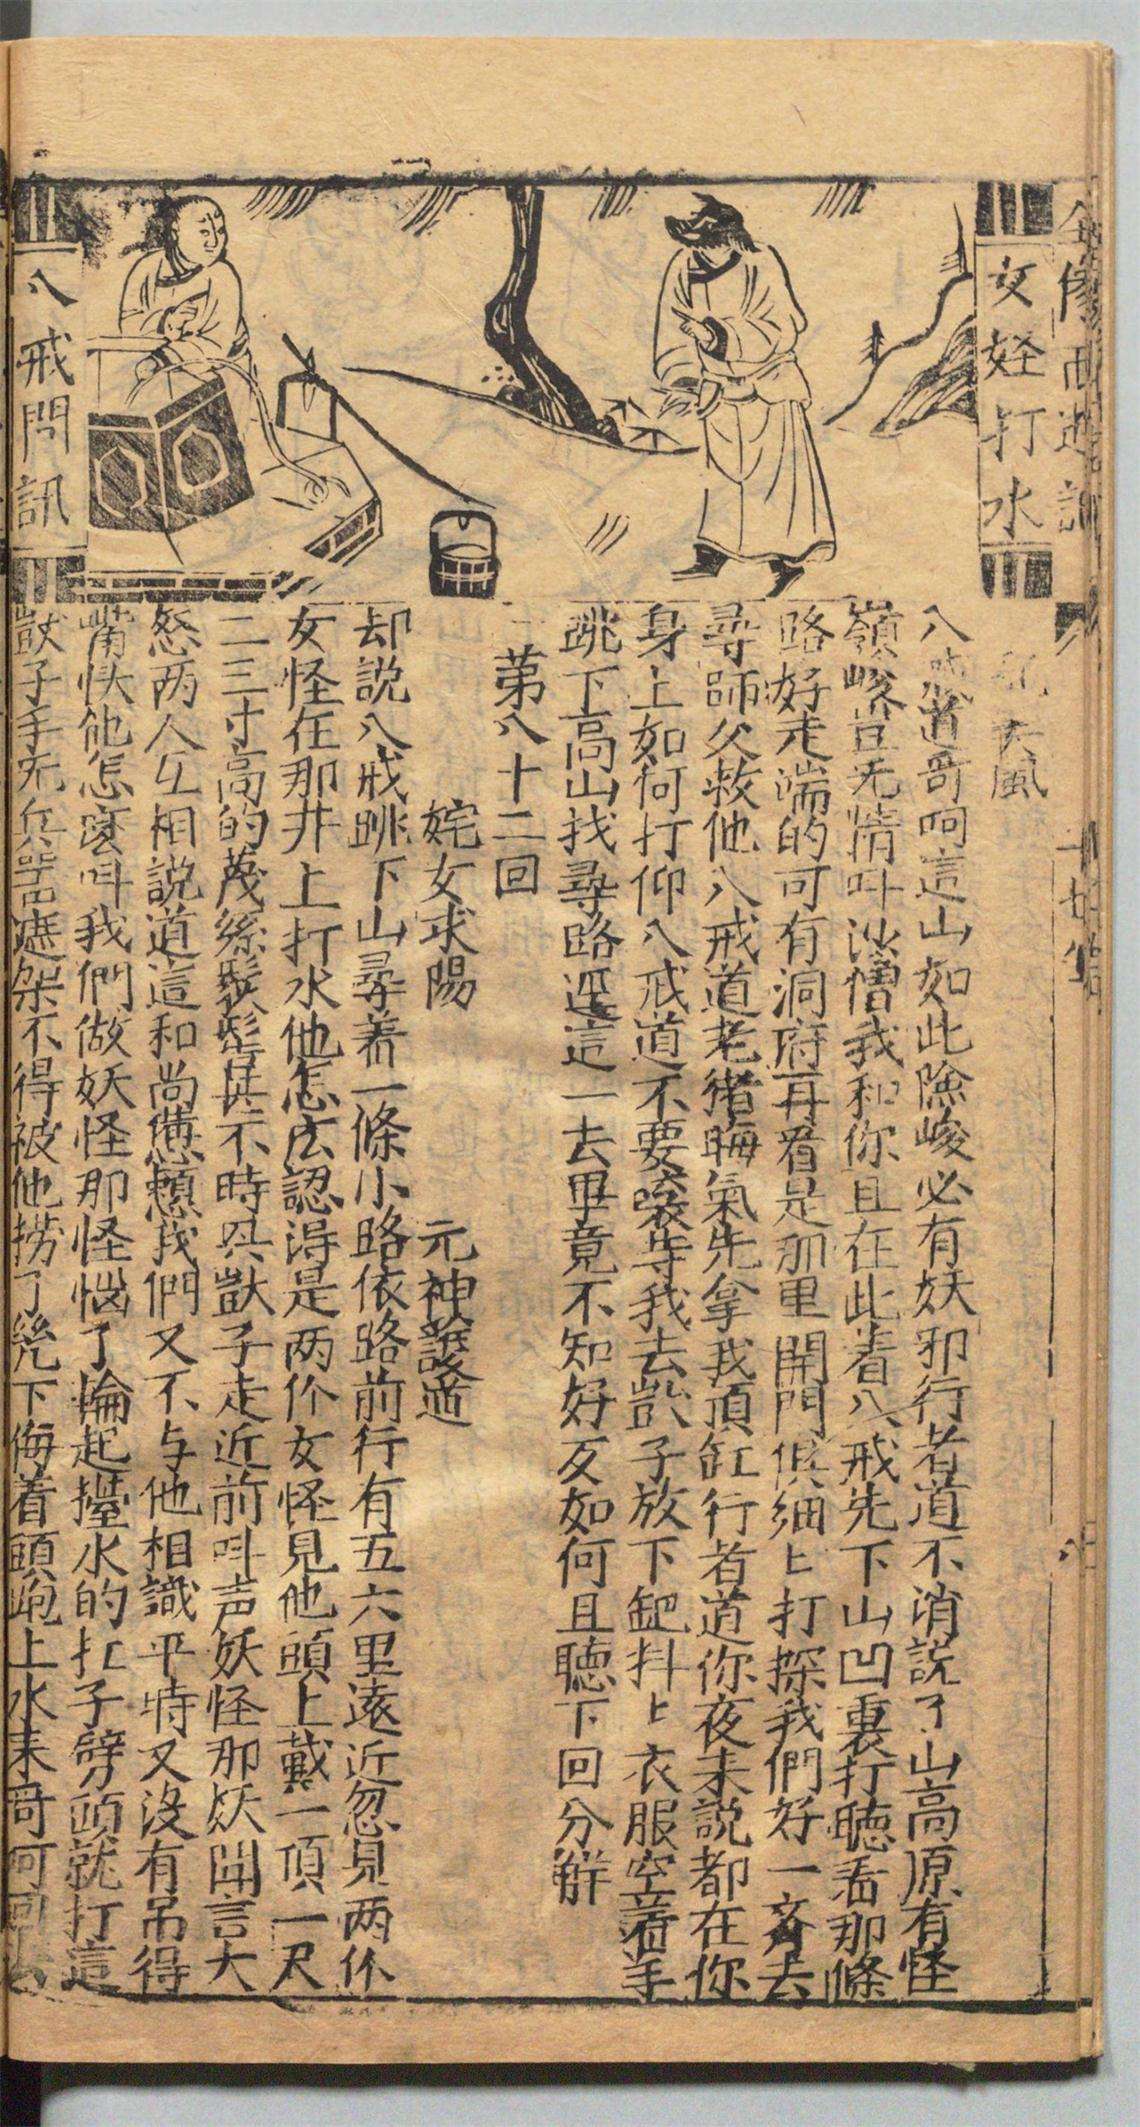 全像西遊記
女妖打水
八戒問訊
八戒道哥呵這山如此險峻必有妖邪行者道不消說了山高原有怪
嶺峻豈无情叫沙僧我和你且在此着八戒先下山凹裏打聽看那條
路好走端的可有洞府再看是那里開門俱細〻打探我們好一齊去
尋師父救他八戒道老猪晦氣先拿我頂缸行者道你夜来說都在你
身上如何打仰八戒道不要嚷等我去獃子放下鈀抖〻衣服空着手
跳下高山找尋路逕這一去畢竟不知好歹如何且聽下回分觧
第八十二回
姹女求陽　元神護道
却説八戒跳下山尋着一條小路依路前行有五六里遠近忽見两个
女怪在那井上打水他怎庅認得是两个女怪見他頭上戴一頂一尺
二三寸高的篾絲䯼髻甚不時興獃子走近前叫声妖怪那妖聞言大
怒两人互相説道這和尚憊懶我們又不与他相識平時又没有吊得
嘴慣他怎麼叫我們做妖怪那怪惱了輪起擡水的扛子劈頭就打這
獃子手无兵器遮架不得被他撈了幾下侮着頭跑上山来哥呵回去